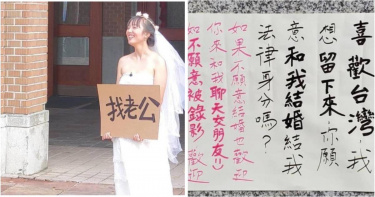 找老公
喜歡台灣,我
想留下來,你願
意和我結婚給我
法律身分嗎?
如果不願意結婚也歡迎
你來和我聊天交朋友=)
如不願意被錄影 歡迎